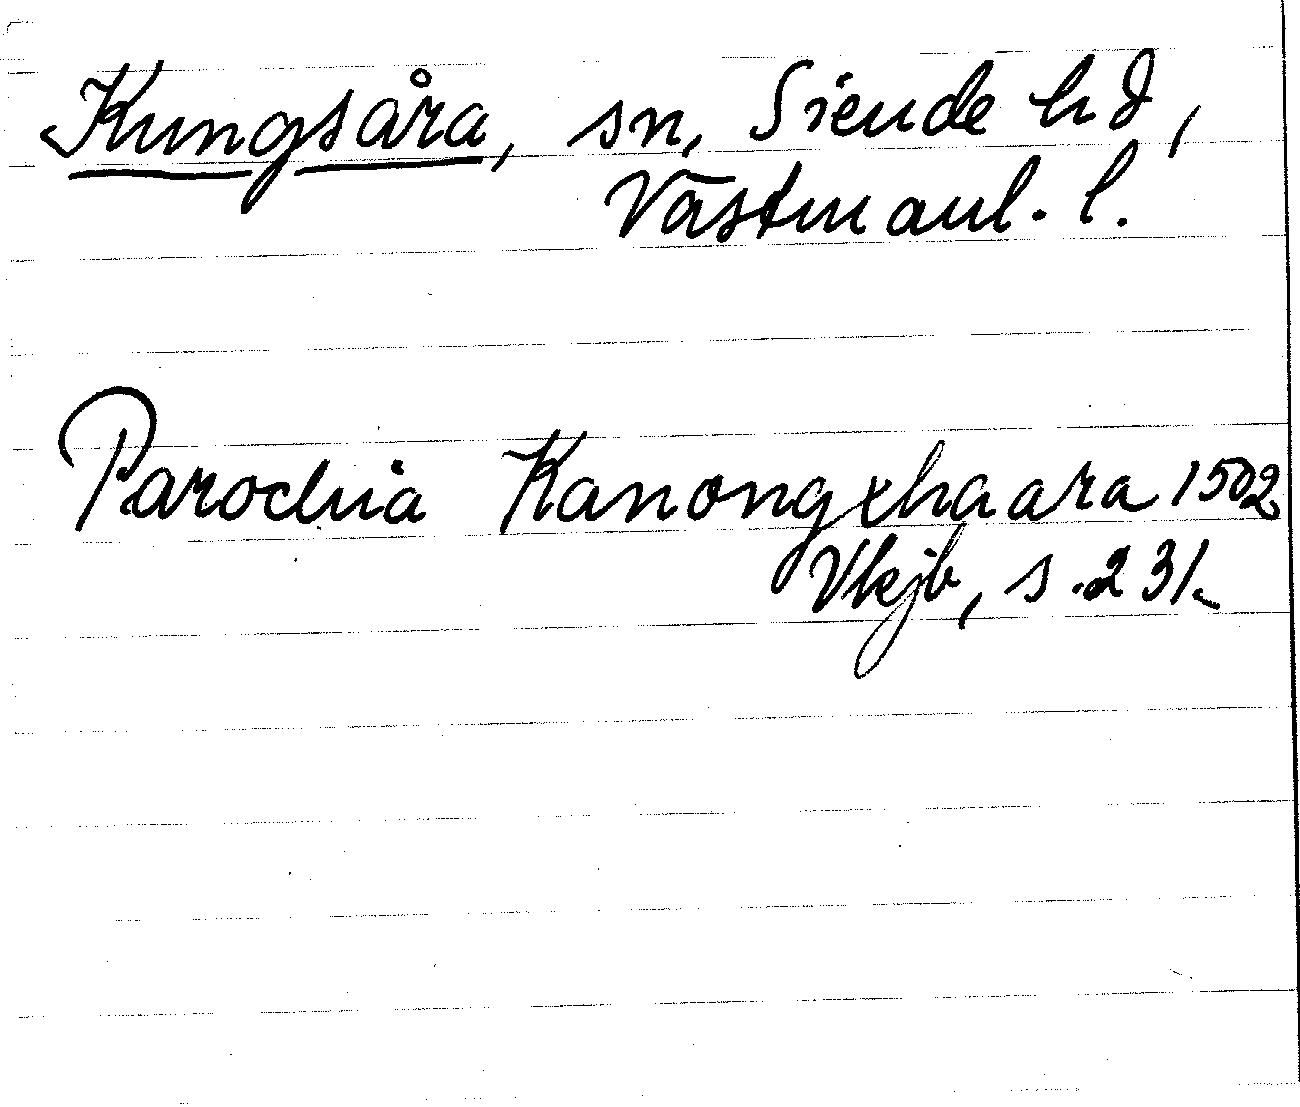 Kungsåra, sn, Siende hd,
Västmanl. l.
Parochia Kanongxhaara 1502
Vkjb, s. 231.